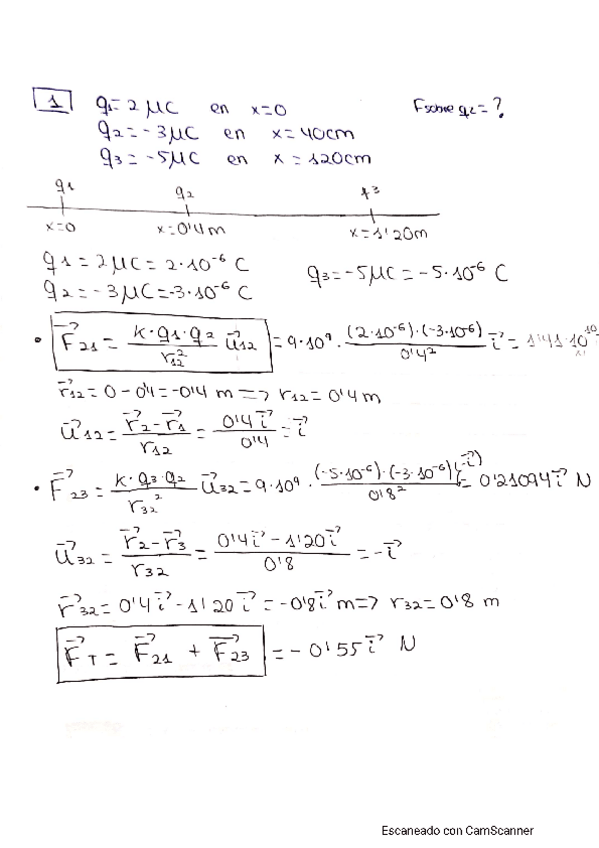 1 q1=2 μC en x=0 Fsobre q2=?
q2=-3μC en x=40cm
q3=-5μC en x=120cm
q1 q2 q3
x=0 x=0'4m x=1'20m
q1=2μC=2·10⁻⁶ C q3=-5μC=-5·10⁻⁶ C
q2=-3μC=-3·10⁻⁶ C
• F⃗21 = K·q1·q2/r12² u⃗12 = 9·10⁹ · (2·10⁻⁶)·(-3·10⁻⁶)/0'4² i⃗ = 1'41·10¹⁰
r⃗12=0-0'4=-0'4 m => r12=0'4m
u⃗12 = r⃗2-r⃗1/r12 = 0'4i⃗/0'4 = i⃗
• F⃗23 = K·q3·q2/r32² u⃗32 = 9·10⁹ · (-5·10⁻⁶)·(-3·10⁻⁶)(-i⃗)/0'8² = 0'21094i⃗ N
u⃗32 = r⃗2-r⃗3/r32 = 0'4i⃗-1'20i⃗/0'8 = -i⃗
r⃗32=0'4i⃗-1'20i⃗=-0'8i⃗ m=> r32=0'8 m
F⃗T = F⃗21 + F⃗23 = -0'55i⃗ N
Escaneado con CamScanner